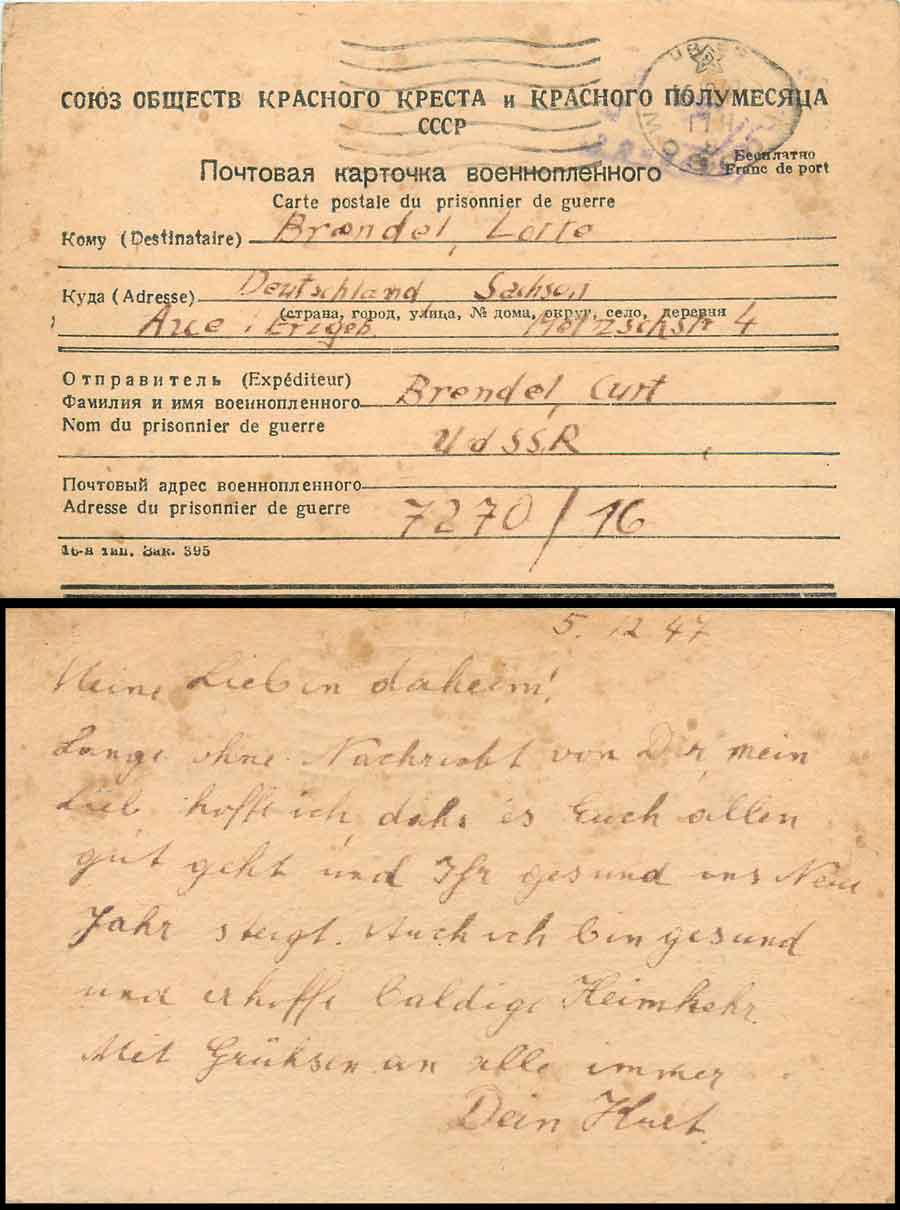 СОЮЗ ОБЩЕСТВ КРАСНОГО КРЕСТА и КРАСНОГО ПОЛУМЕСЯЦА
СССР
Бесплатно
Franc de port
Почтовая карточка военнопленного
Carte postale du prisonnier de guerre
Кому (Destinataire) Brændel, Lotte
Куда (Adresse) Deutschland Sachsen
(страна, город, улица, № дома, округ, село, деревня
Aue i Erzgeb. 4
Отправитель (Expéditeur)
Фамилия и имя военнопленного Brendel, Curt
Nom du prisonnier de guerre UdSSR
Почтовый адрес военнопленного
Adresse du prisonnier de guerre 7270/16
16-я тип. Зак. 395
5. 12 47
Meine Lieben daheim!
Lange ohne Nachricht von Dir, mein
Lieb hoffe ich, dahs es Euch allen
gut geht und Ihr gesund ins Neue
Jahr steigt. Auch ich bin gesund
und erhoffe baldige Heimkehr.
Mit Grühsen an alle immer
Dein Kurt.